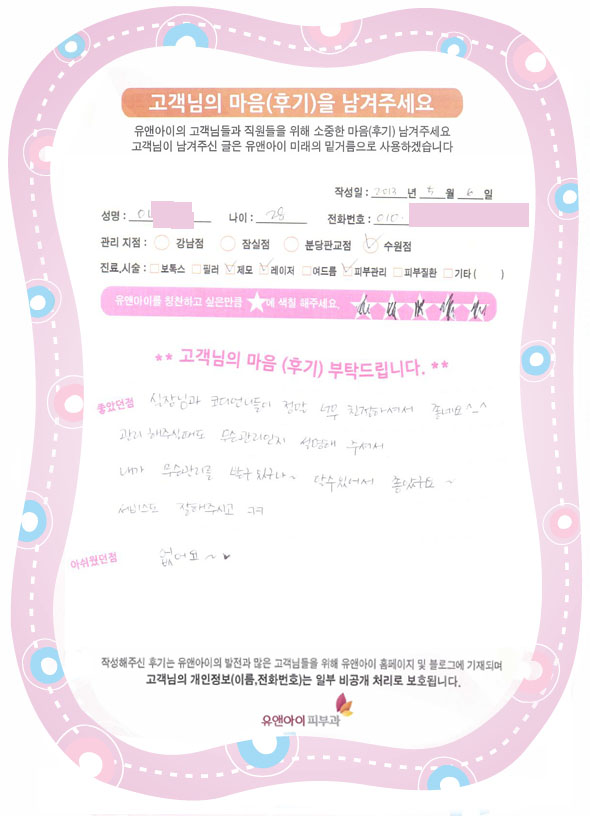 고객님의 마음(후기)을 남겨주세요
유앤아이의 고객님들과 직원들을 위해 소중한 마음(후기) 남겨주세요
고객님이 남겨주신 글은 유앤아이 미래의 밑거름으로 사용하겠습니다
작성일 : 2013 년 5 월 6 일
성명 : 이 나이 : 28 전화번호 : 010-
관리 지점 : 강남점 잠실점 분당판교점 수원점
진료,시술 : 보톡스 필러 제모 레이저 여드름 피부관리 피부질환 기타 ( )
유앤아이를 칭찬하고 싶은만큼 ★에 색칠 해주세요.
** 고객님의 마음 (후기) 부탁드립니다. **
좋았던점 실장님과 코디언니들이 정말 너무 친절하셔서 좋네요^-^
관리 해주실때도 무슨관리인지 설명해 주셔서
내가 무슨관리를 받구 있구나~ 알수있어서 좋았어요~
서비스도 잘해주시고 ㅋㅋ
아쉬웠던점 없어요~♥
작성해주신 후기는 유앤아이의 발전과 많은 고객님들을 위해 유앤아이 홈페이지 및 블로그에 기재되며
고객님의 개인정보(이름,전화번호)는 일부 비공개 처리로 보호됩니다.
유앤아이피부과